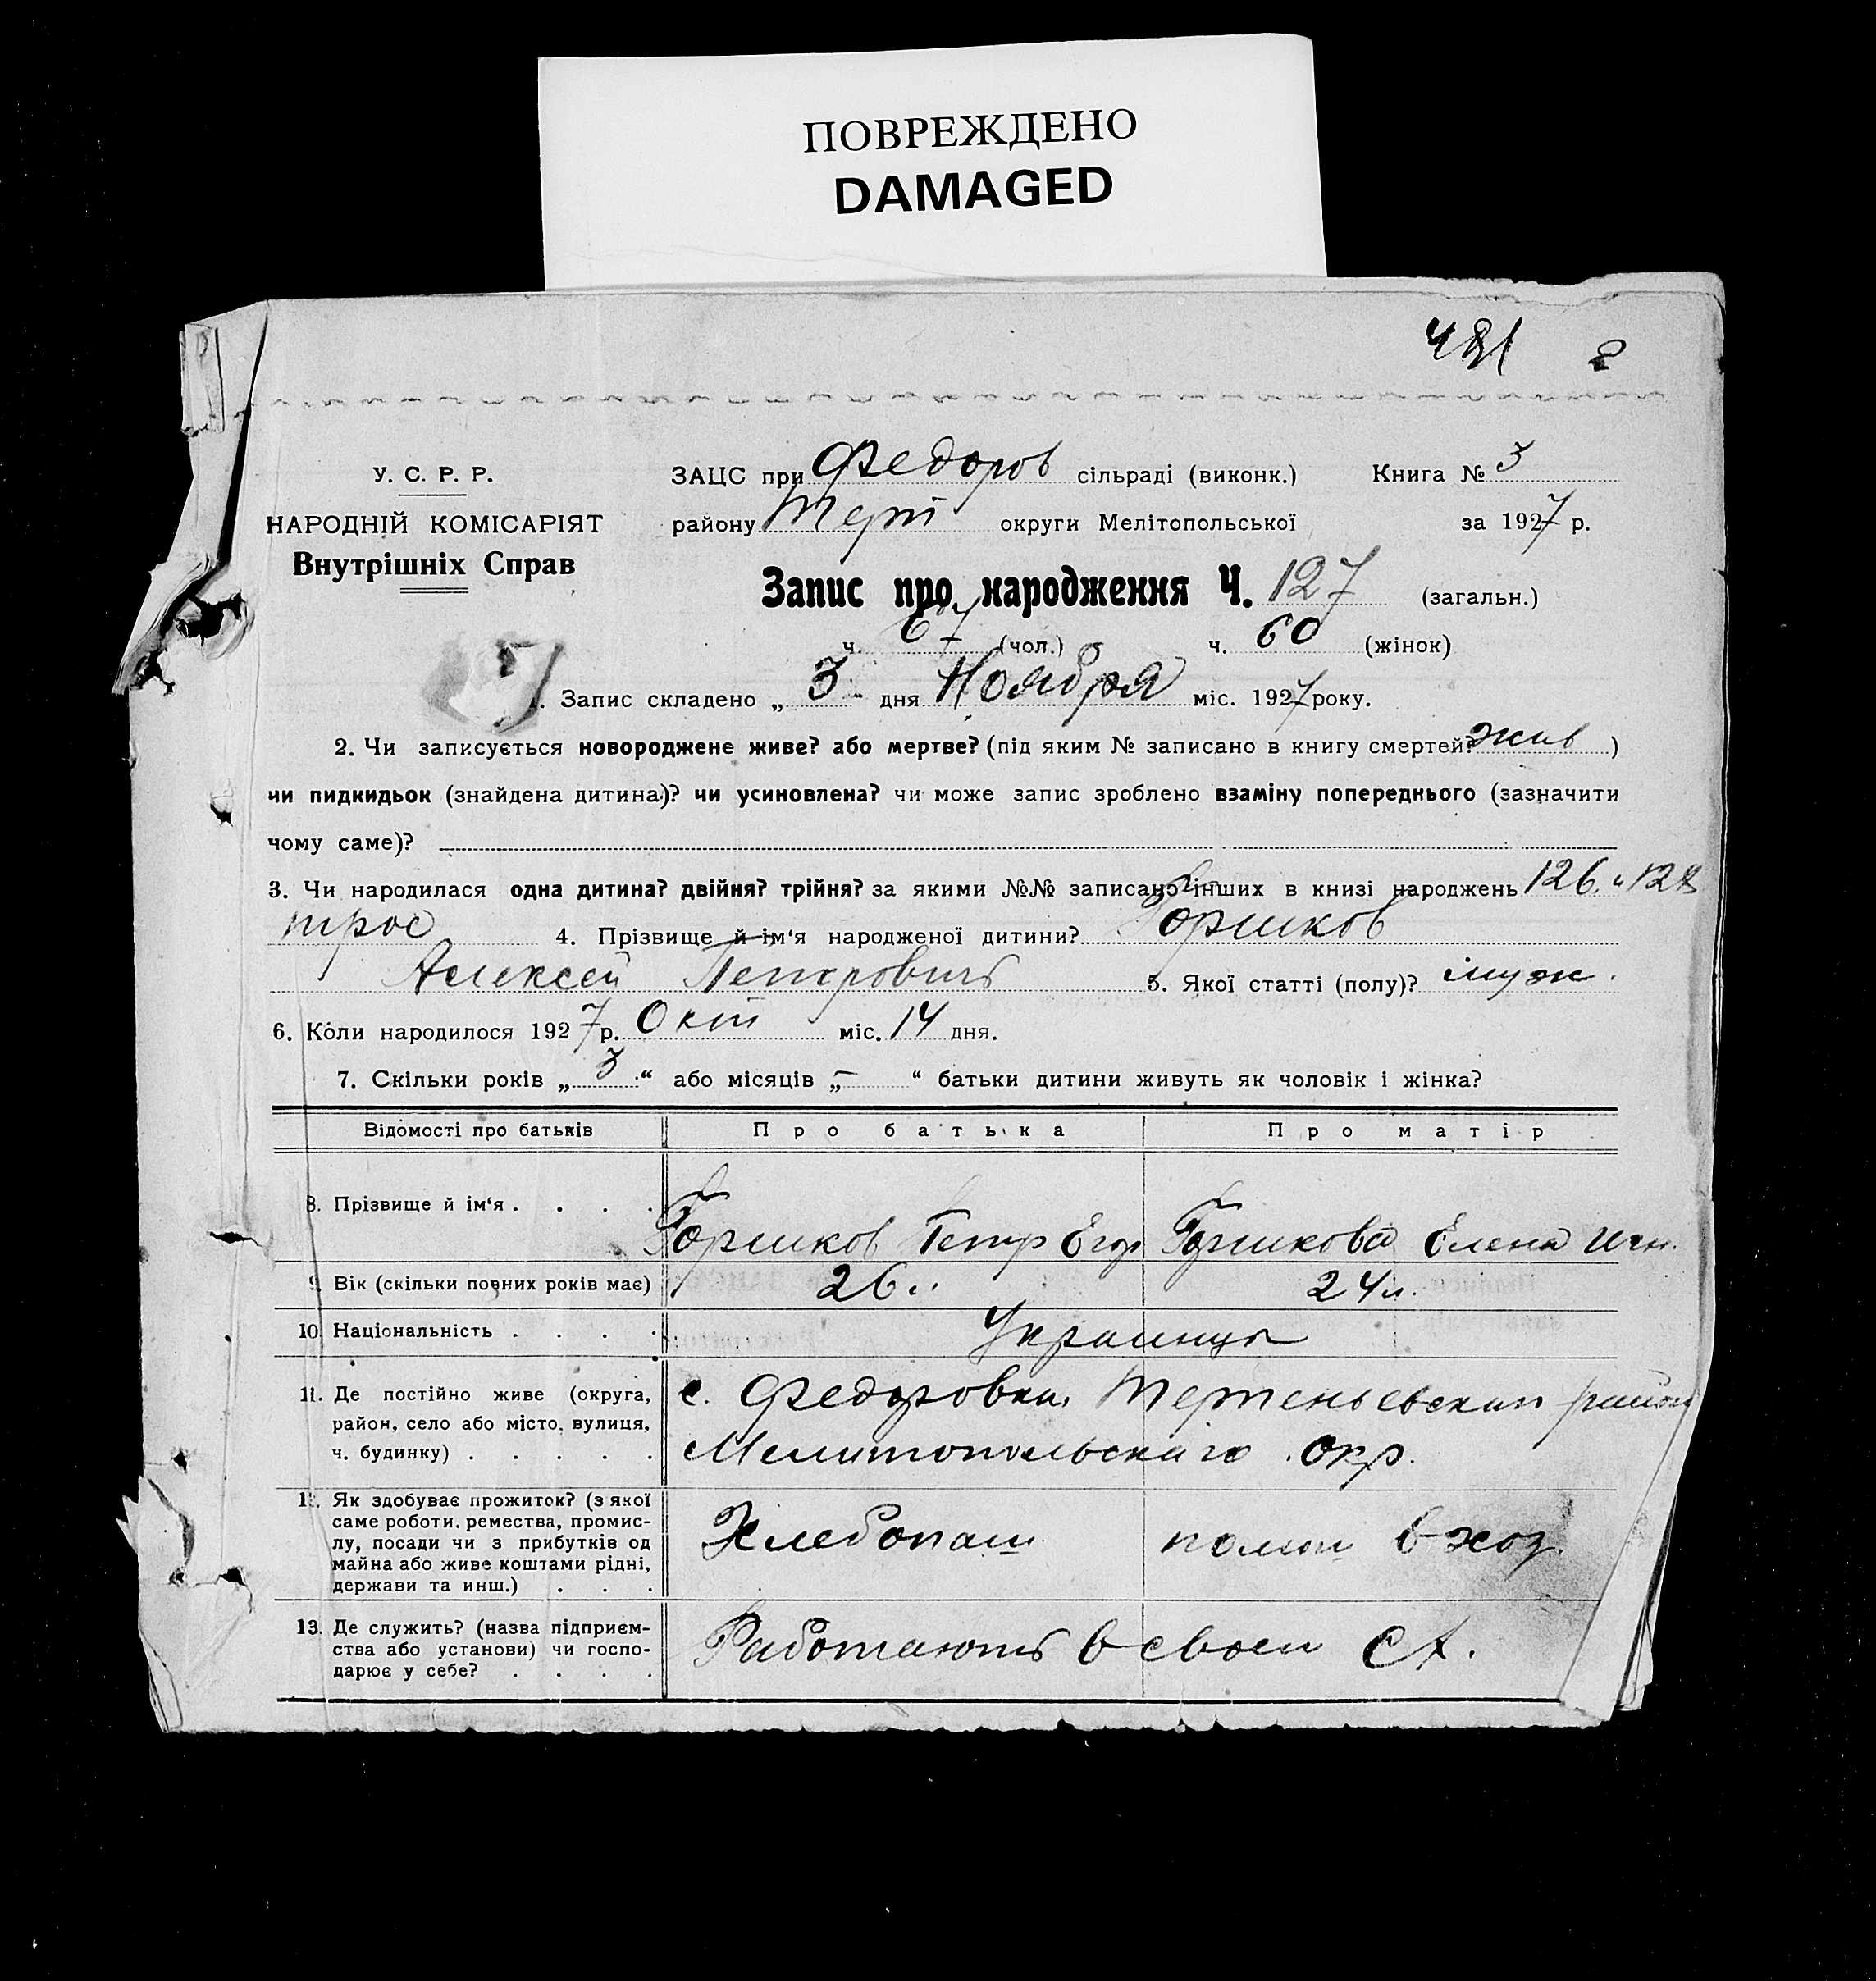 ПОВРЕЖДЕНО
DAMAGED
481 2
У. С. Р. Р.
НАРОДНІЙ КОМІСАРІЯТ
Внутрішніх Справ
ЗАЦС при Федоров сільраді (виконк.) Книга № 3
району Терп округи Мелітопольської за 1927 р.
Запис про народження Ч. 127 (загальн.)
ч. 67 (чол.) ч. 60 (жінок)
1. Запис складено „ 3 дня Ноября міс. 1927 року.
2. Чи записується новороджене живе? або мертве? (під яким № записано в книгу смертей? жив )
чи пидкидьок (знайдена дитина)? чи усиновлена? чи може запис зроблено взаміну попереднього (зазначити
чому саме)?
3. Чи народилася одна дитина? двійня? трійня? за якими №№ записано інших в книзі народжень 126 и 128
трое 4. Прізвище й ім‘я народженої дитини? Горшков
Алексей Петровичъ 5. Якої статті (полу)? муж.
6. Коли народилося 1927 р. Окт міс. 14 дня.
7. Скільки років „ 3 “ або місяців „ – “ батьки дитини живуть як чоловік і жінка?
Відомості про батьків Про батька Про матір
8. Прізвище й ім‘я . . . . Горшков Петр Егор Горшкова Елена
9. Вік (скільки повних років має) 26 24 л.
10. Національність . . . . Украинцы
11. Де постійно живе (округа,
район, село або місто, вулиця,
ч. будинку) . . . . .
с. Федоровка, район
Мелитопольскаго Окр.
12. Як здобуває прожиток? (з якої
саме роботи, ремества, промис-
лу, посади чи з прибутків од
майна або живе коштами рідні,
держави та инш.) . . .
Хлебопаш помощ в хоз.
13. Де служить? (назва підприєм-
ства або установи) чи госпо-
дарює у себе? . . . .
Работаютъ в своем